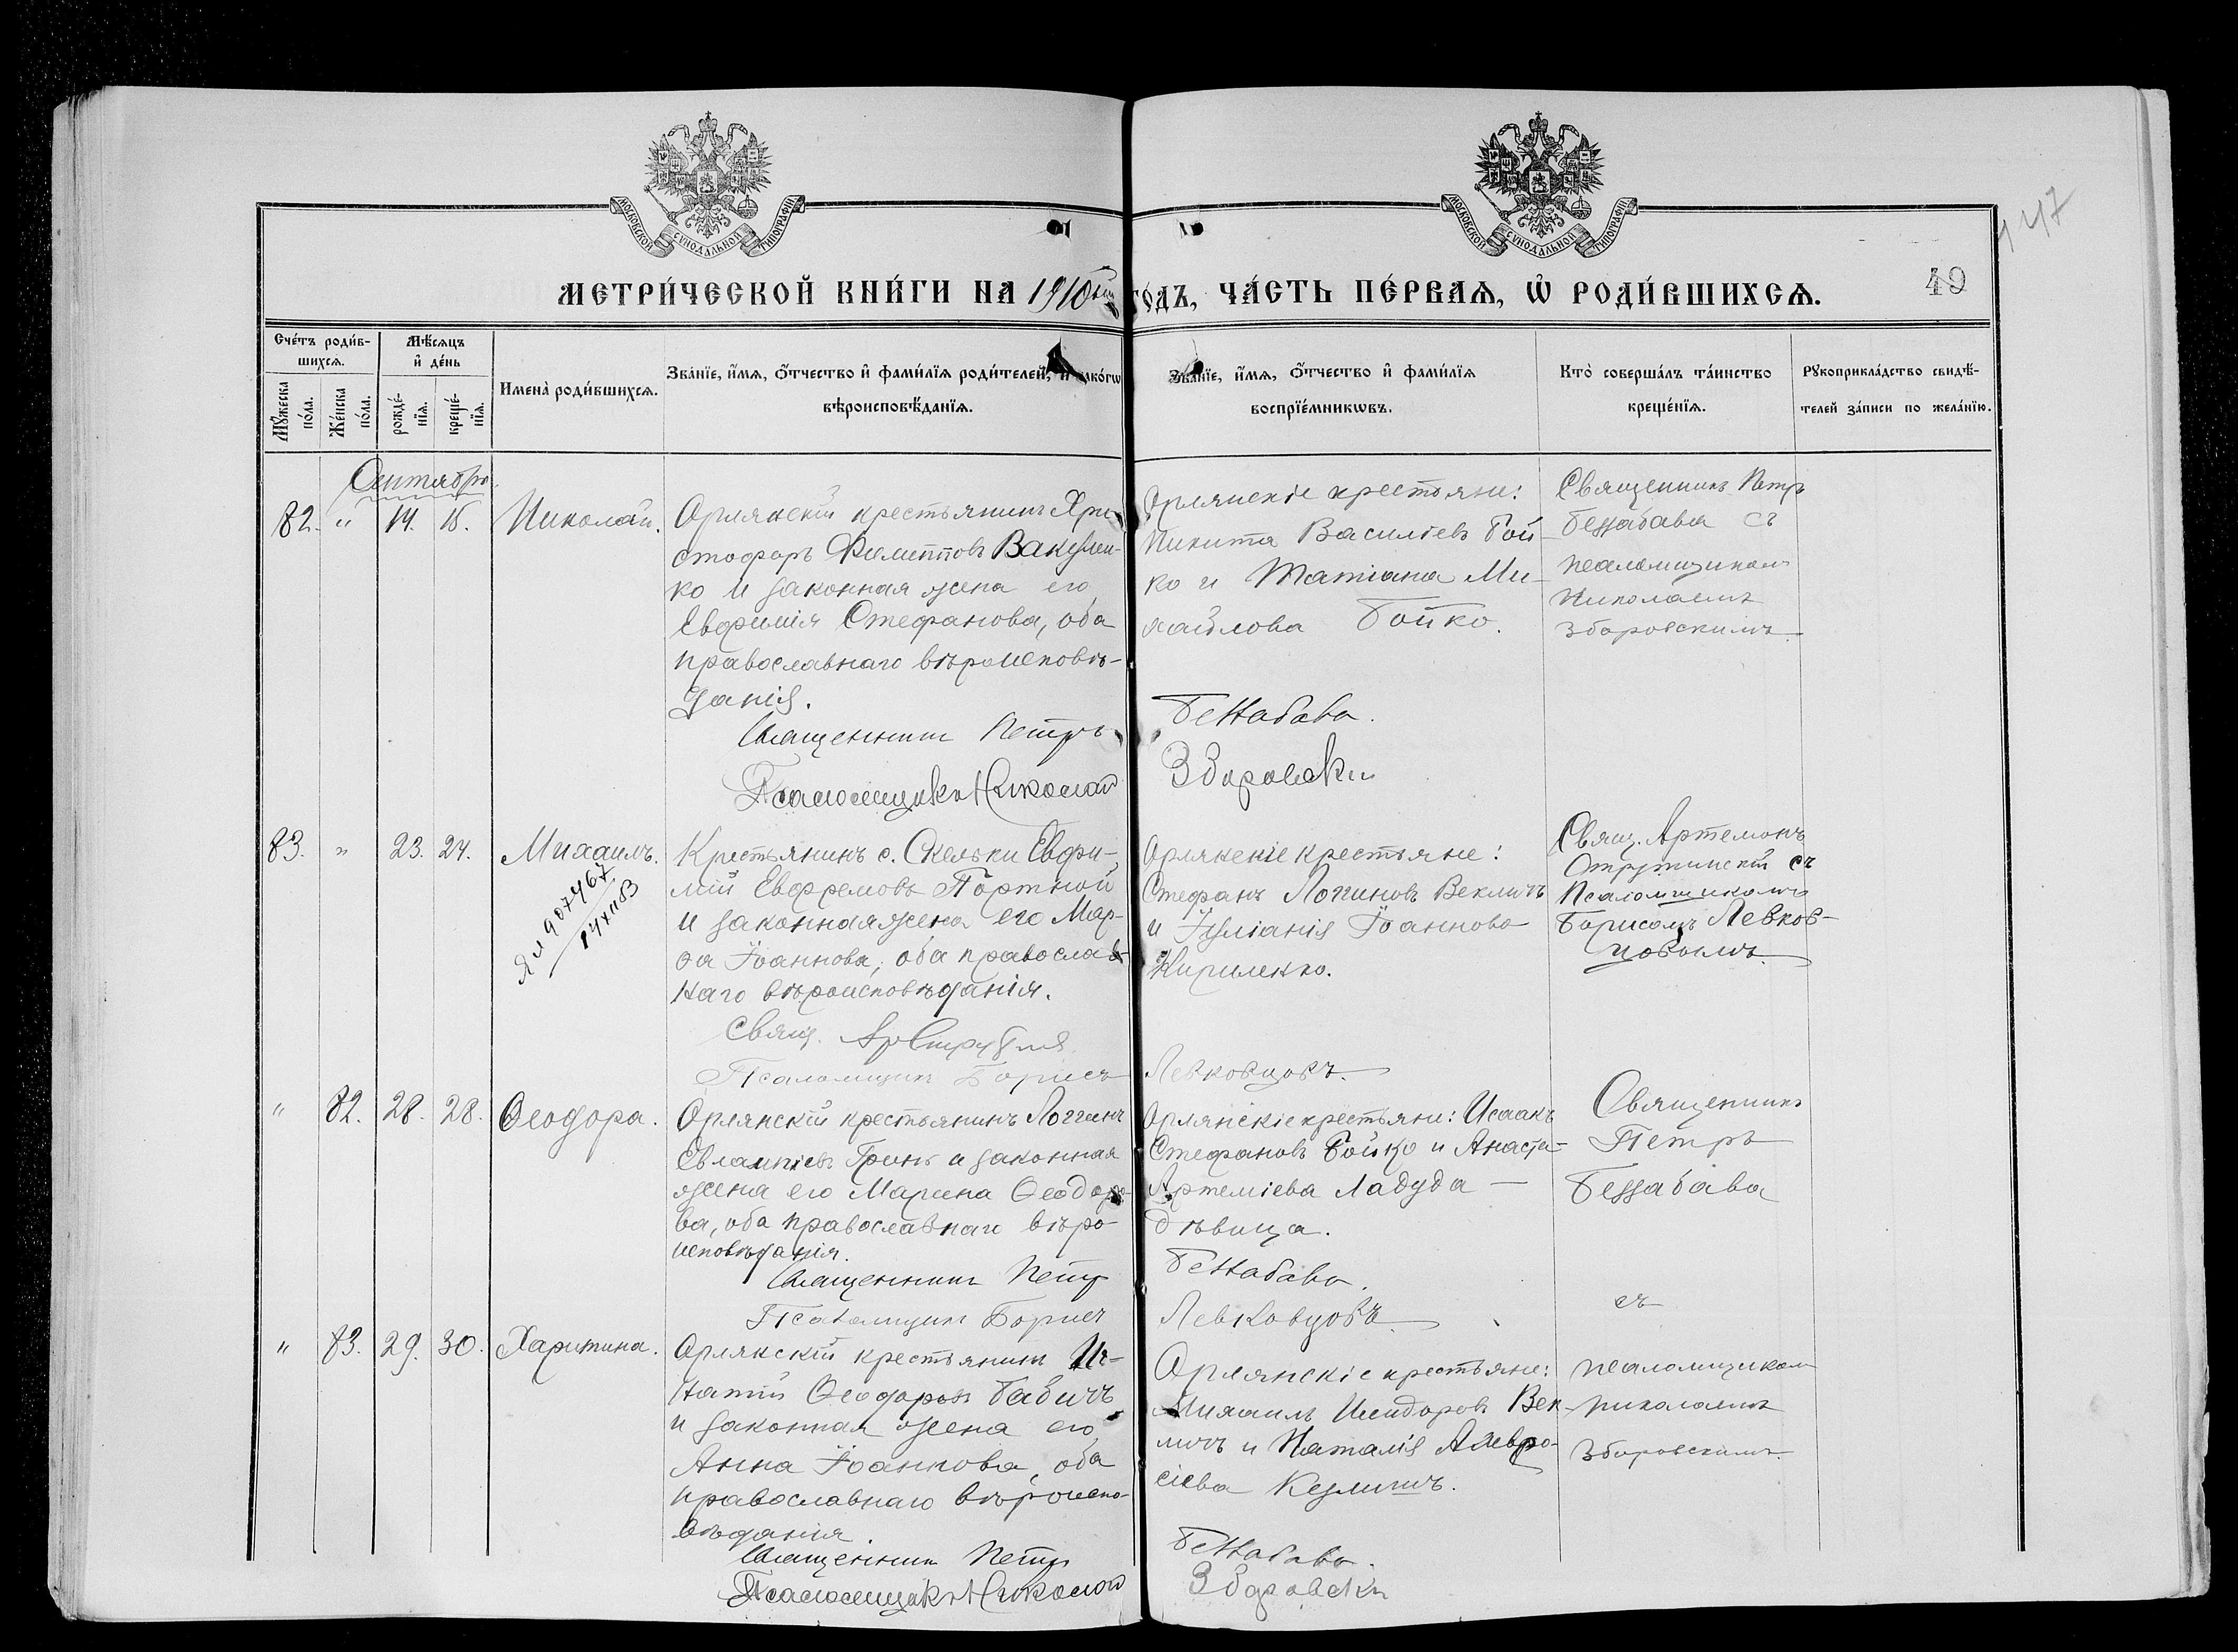 МОСКОВСКОЙ СѴНОДАЛЬНОЙ ТИПОГРАФІИ
МОСКОВСКОЙ СѴНОДАЛЬНОЙ ТИПОГРАФІИ
147
МЕТРИ́ЧЕСКОЙ КНИ́ГИ НА 1910 ГО́ДЪ, ЧА́СТЬ ПЕ́РВАѦ, Ѡ҆ РОДИ́ВШИХСѦ.
49
Сче́тъ роди́в-
шихсѧ.
Мꙋ́жеска по́ла.
Же́нска по́ла.
Мѣ́сѧцъ
и҆ де́нь
рожде́-
нїѧ.
креще́-
нїѧ.
Имена̀ роди́вшихсѧ.
Зва́нїе, и҆́мѧ, ѻ҆́тчество и҆ фами́лїѧ роди́телей, и҆ како́гѡ
вѣроисповѣ́данїѧ.
Зва́нїе, и҆́мѧ, ѻ҆́тчество и҆ фами́лїѧ
воспрїе́мникѡвъ.
Кто̀ соверша́лъ та́инство
креще́нїѧ.
Рꙋкоприкла́дство свидѣ́-
телей за́писи по жела́нїю.
Сентябрь.
82. " 14. 15. Николай.
Орлянскій крестьянинъ Хри-
стофоръ Филипповъ Вакулен-
ко и законная жена его
Евфимія Стефанова, оба
православнаго вѣроисповѣ-
данія.
Священникъ Петръ
Псаломщикъ Николай
Орлянскіе крестьяне:
Никита Василіевъ Бой-
ко и Татіана Ми-
хайлова Бойко.
Беззабава.
Зборовскій
Священникъ Петръ
Беззабава съ
псаломщикомъ
Николаемъ
Зборовскимъ.
83. " 23. 24. Михаилъ.
Крестьянинъ с. Скельки Евфи-
мій Евфремовъ Портной
и законная жена его Мар-
ѳа Іоаннова, оба православ-
наго вѣроисповѣданія.
Свящ.
Псаломщикъ Борисъ
Орлянскіе крестьяне:
Стефанъ Логиновъ Векличъ
и Іуліанія Іоаннова
Кириленко.
Левковцовъ.
Свящ. Артемонъ
съ
Псаломщикомъ
Борисомъ Левков-
цовымъ.
" 82. 28. 28. Ѳеодора.
Орлянскій крестьянинъ Логгинъ
Евлампіевъ Гринь и законная
жена его Марина Ѳеодоро-
ва, оба православнаго вѣро-
исповѣданія.
Священникъ Петръ
Псаломщикъ Борисъ
Орлянскіе крестьяне: Исаакъ
Стефановъ Бойко и Анаста-
Артеміева Ладуда —
дѣвица.
Беззабава.
Левковцовъ.
Священникъ
Петръ
Беззабава
съ
" 83. 29. 30. Харитина.
Орлянскій крестьянинъ Иг-
натій Ѳеодоровъ Бабичъ
и законная жена его
Анна Іоаннова, оба
православнаго вѣроиспо-
вѣданія.
Священникъ Петръ
Псаломщикъ Николай
Орлянскіе крестьяне:
Михаилъ Исидоровъ Век-
личъ и Наталія Амвро-
сіева
Беззабава.
Зборовскій
псаломщикомъ
Николаемъ
Зборовскимъ.